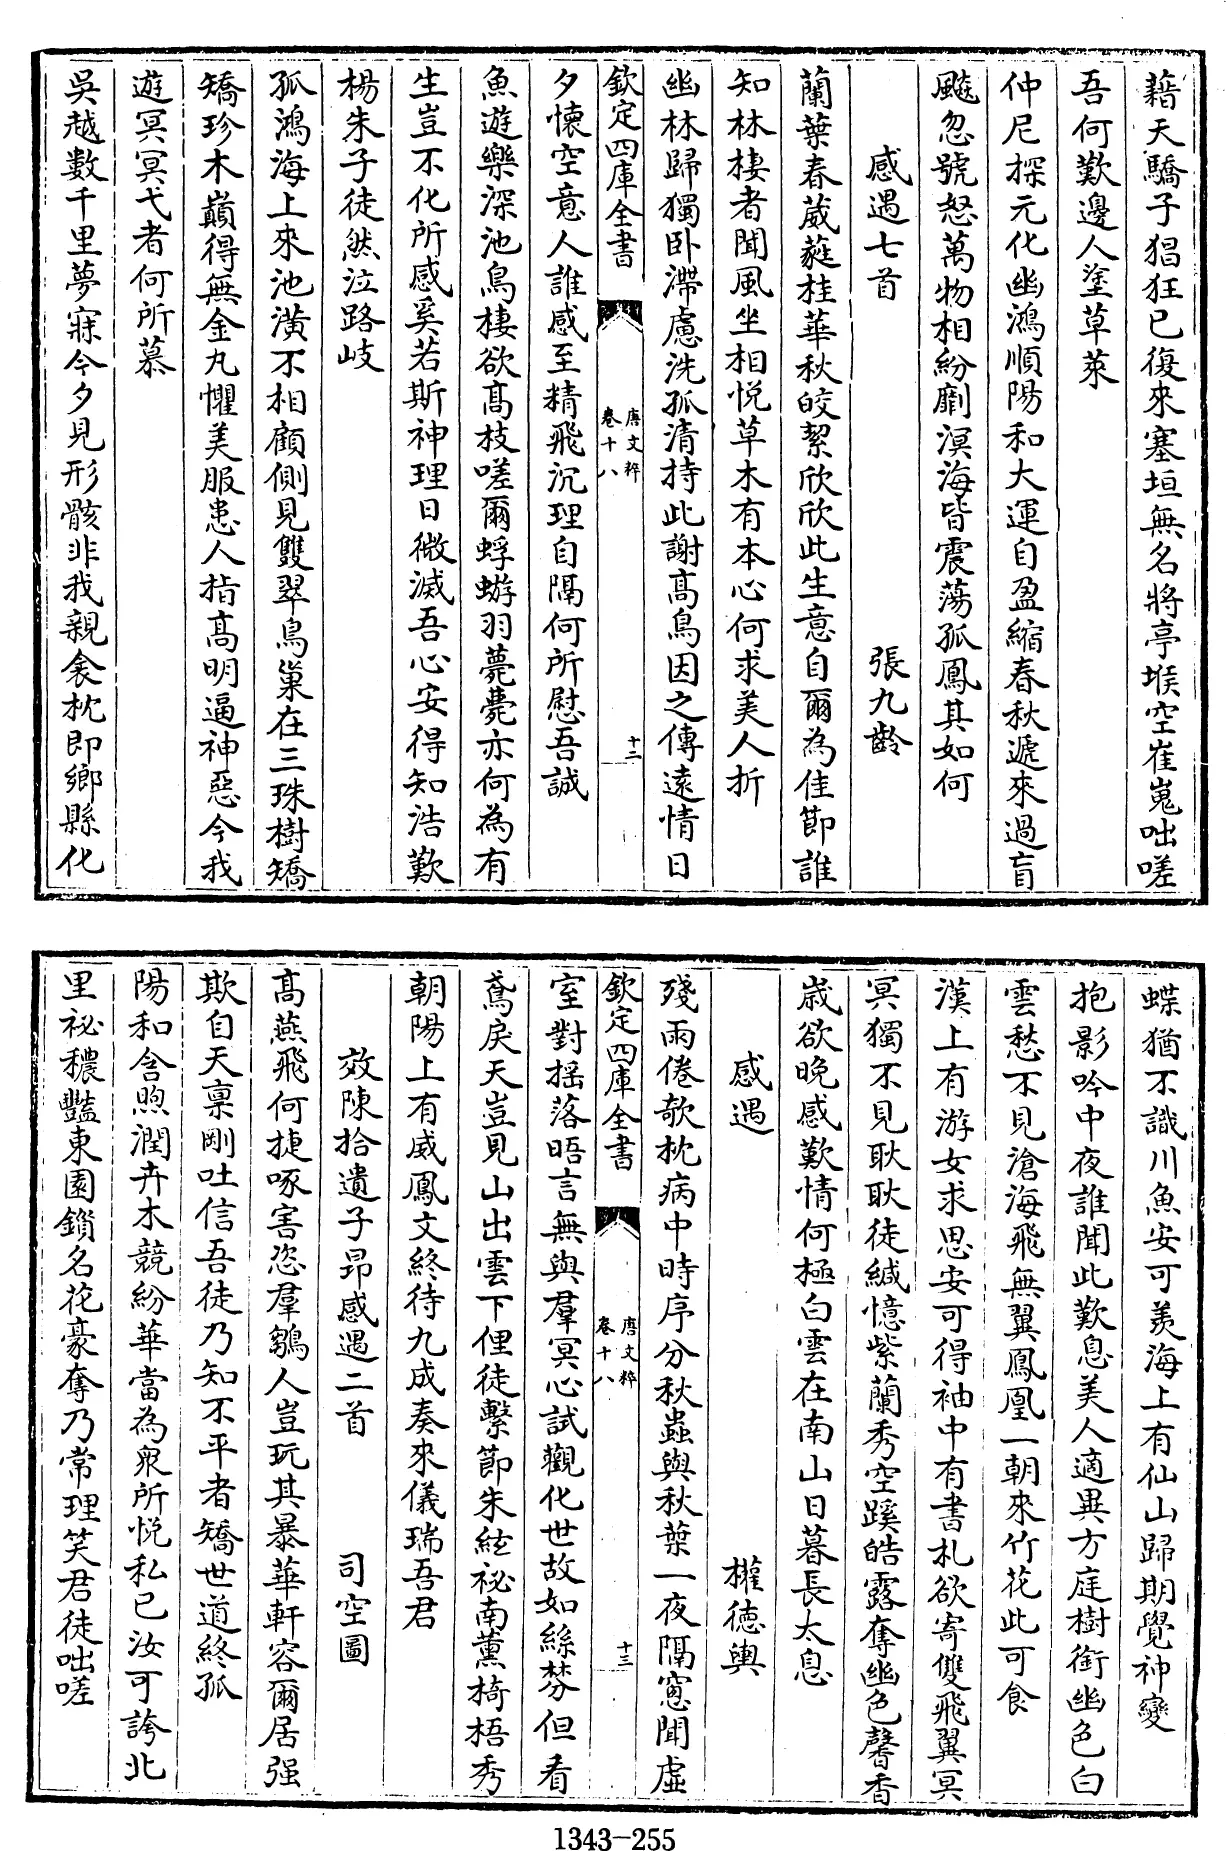 藉天驕子猖狂已復來塞垣無名將亭堠空崔嵬咄嗟
吾何歎邊人塗草萊
仲尼探元化幽鴻順陽和大運自盈縮春秋遞來過盲
飈忽號怒萬物相紛劘溟海皆震蕩孤鳳其如何
感遇七首 張九齡
蘭葉春葳蕤桂華秋皎絜欣欣此生意自爾為佳節誰
知林棲者聞風坐相悅草木有本心何求美人折
幽林歸獨卧滯慮洗孤清持此謝高鳥因之傳遠情日
欽定四庫全書 唐文粹 卷十八 十二
夕懷空意人誰感至精飛沉理自隔何所慰吾誠
魚遊樂深池鳥棲欲高枝嗟爾蜉蝣羽薨薨亦何為有
生豈不化所感奚若斯神理日微滅吾心安得知浩歎
楊朱子徒然泣路岐
孤鴻海上來池潢不相顧側見雙翠鳥巢在三珠樹矯
矯珍木巔得無金丸懼美服患人指高明逼神惡今我
遊冥冥弋者何所慕
吳越數千里夢寐今夕見形骸非我親衾枕即鄉縣化
蝶猶不識川魚安可羨海上有仙山歸期覺神變
抱影吟中夜誰聞此歎息美人適異方庭樹銜幽色白
雲愁不見滄海飛無翼鳳凰一朝來竹花此可食
漢上有游女求思安可得袖中有書札欲寄雙飛翼冥
冥獨不見耿耿徒緘憶紫蘭秀空蹊皓露奪幽色馨香
歲欲晚感歎情何極白雲在南山日暮長太息
感遇 權德輿
殘雨倦欹枕病中時序分秋蟲與秋葉一夜隔窻聞虛
欽定四庫全書 唐文粹 卷十八 十三
室對揺落晤言無與羣冥心試觀化世故如絲棼但看
鳶戾天豈見山出雲下俚徒擊節朱絃祕南薰椅梧秀
朝陽上有威鳳文終待九成奏來儀瑞吾君
效陳拾遺子昂感遇二首 司空圖
高燕飛何捷啄害恣羣鶵人豈玩其暴華軒容爾居强
欺自天稟剛吐信吾徒乃知不平者矯世道終孤
陽和含煦潤卉木競紛華當為衆所悅私已汝可誇北
里祕穠豔東園鎖名花豪奪乃常理笑君徒咄嗟
1343-255